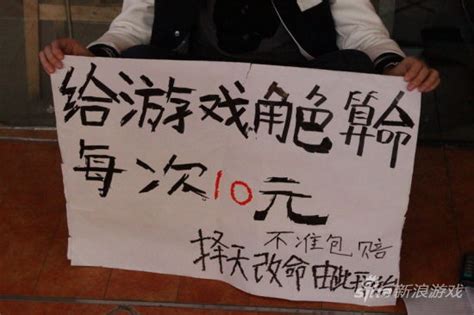 给游戏角色算命
每次10元
不准包赔
择天改命由此开始
新浪游戏